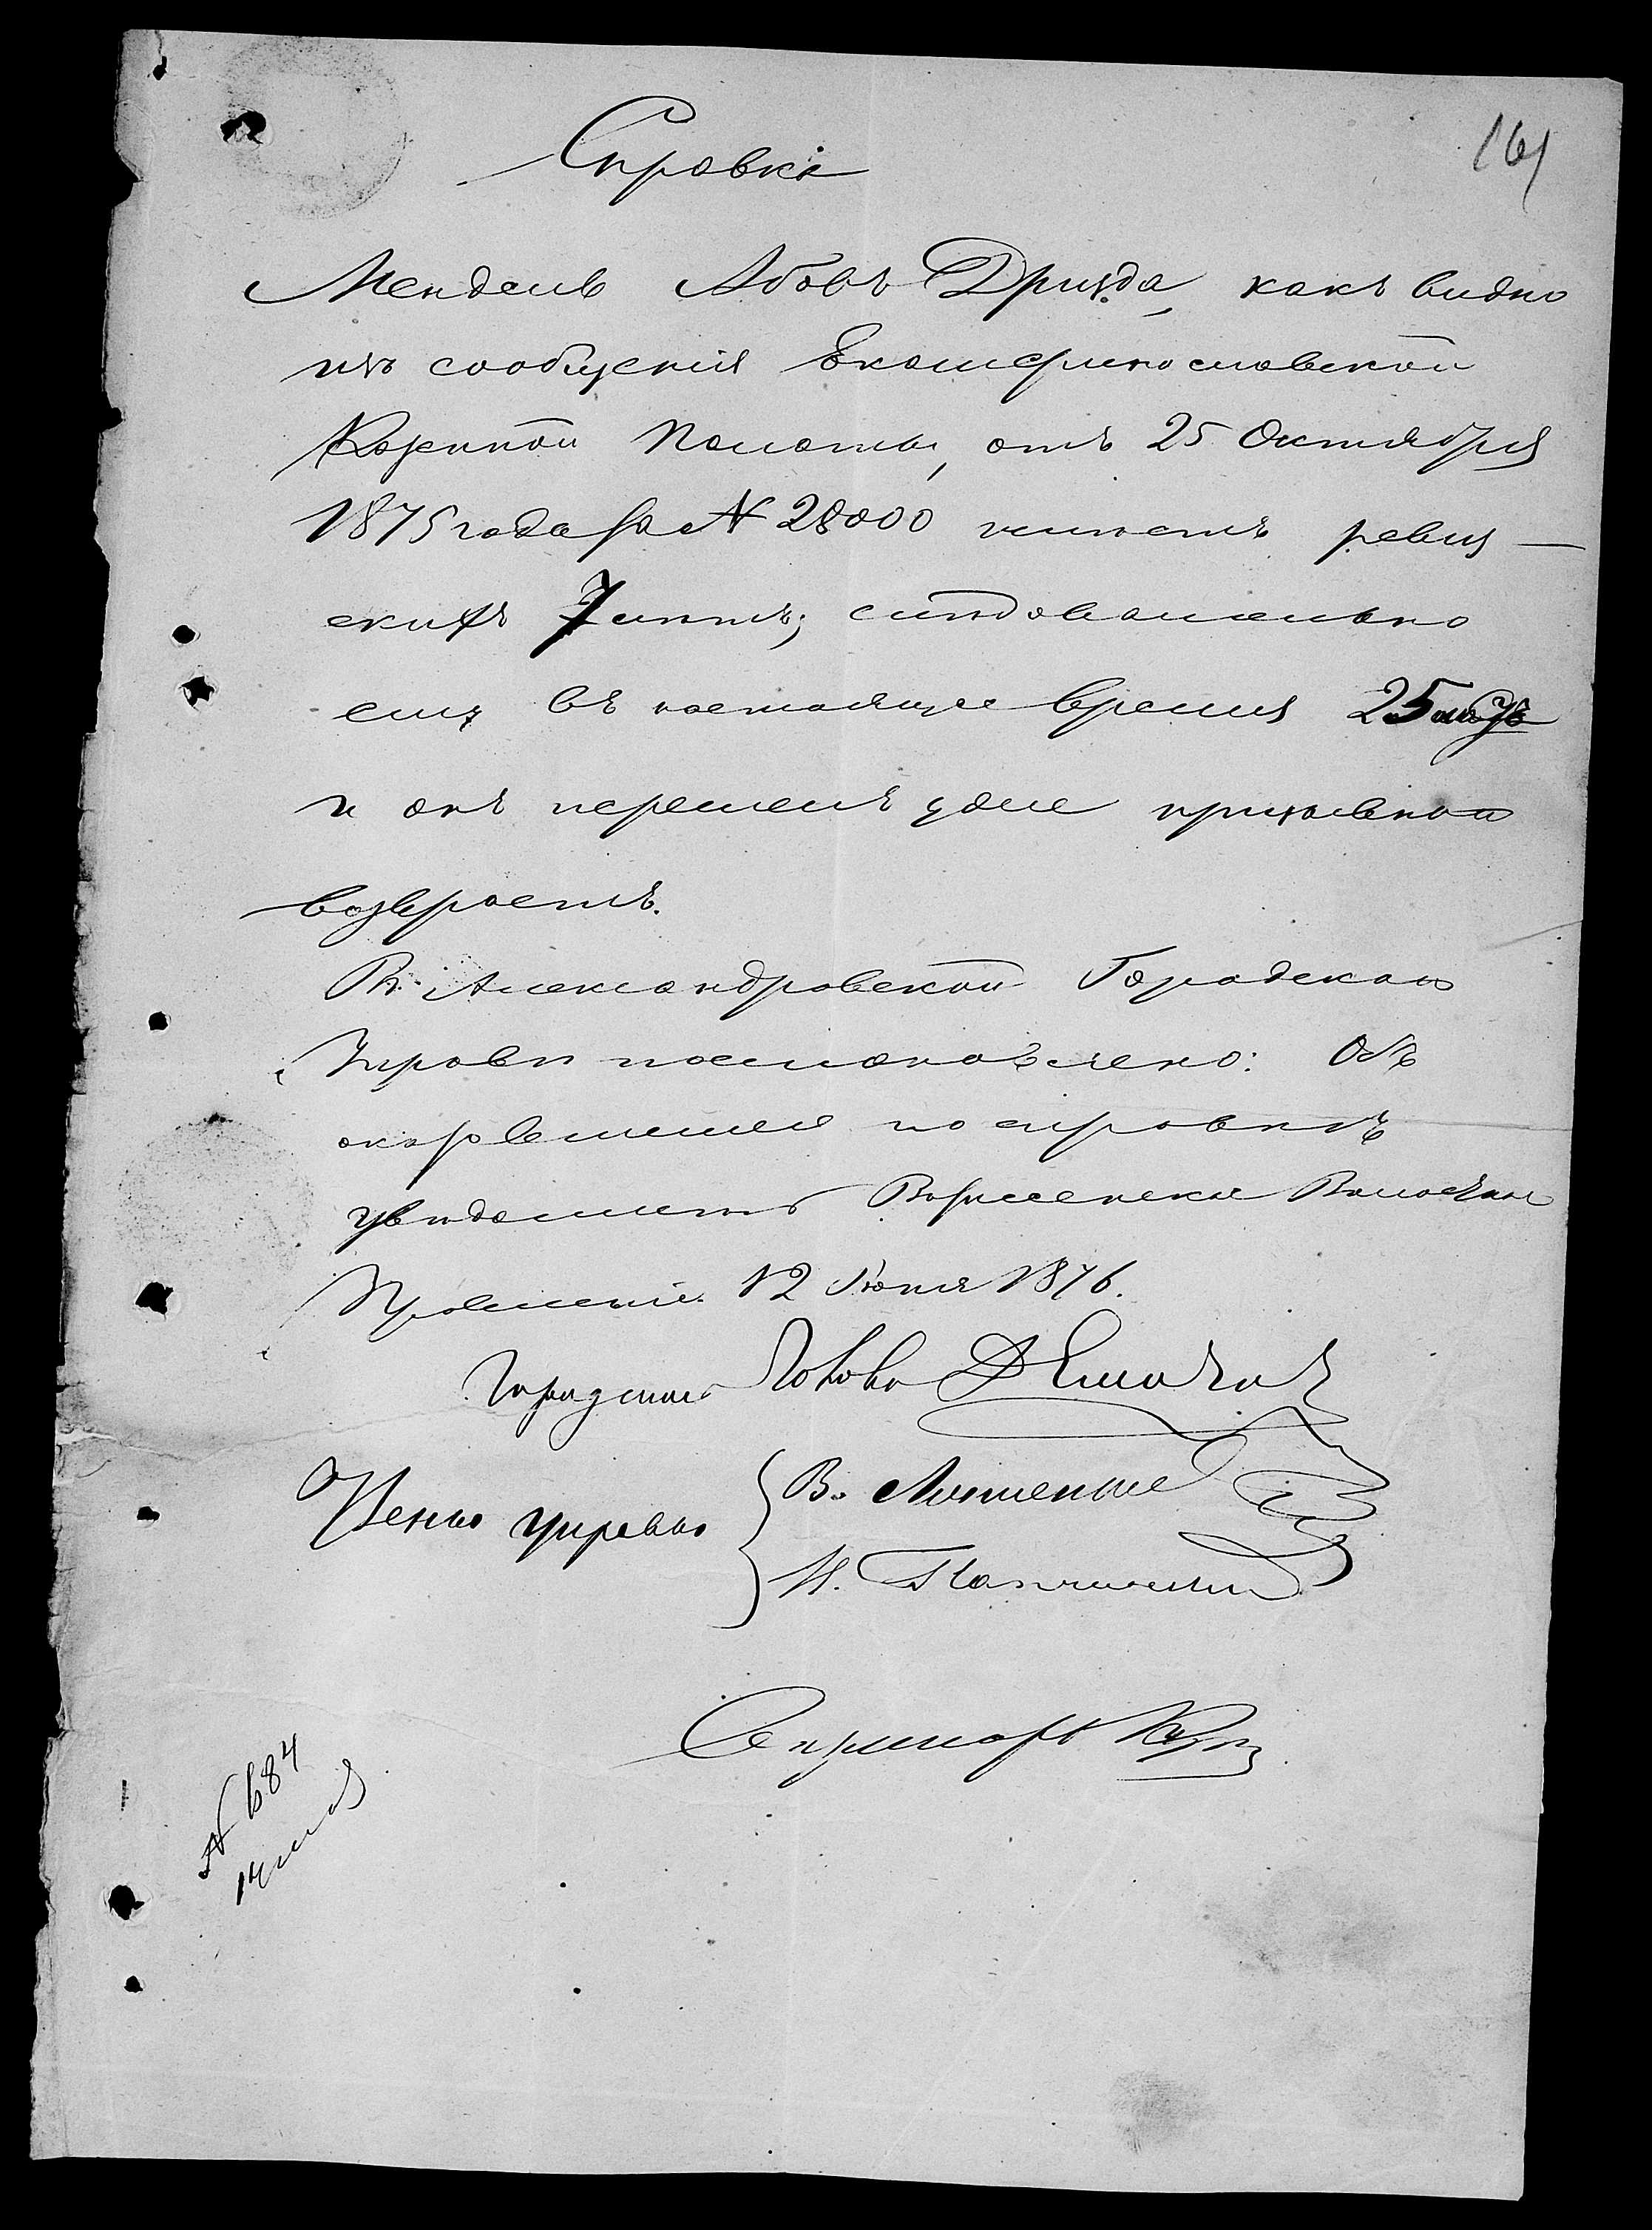 161
Справка
Мендель Абовъ Дризда, какъ видно
изъ сообщенія Екатеринославской
Казенной Палаты, отъ 25 Октября
1875 года за № 28000 имѣетъ ревиз–
скихъ 7 лѣтъ; слѣдовательно
ему въ настоящее время 25 лѣтъ
и онъ перешелъ уже призывной
возврастъ.
Въ Александровской Городской
Управѣ постановлено: Объ
оказавшемся по справкѣ
увѣдомить Волостное
Правленіе. 12 Іюня 1876.
Городской Голова Д
Члены управы В.
И.
Секретарь
№ 684
14 іюня